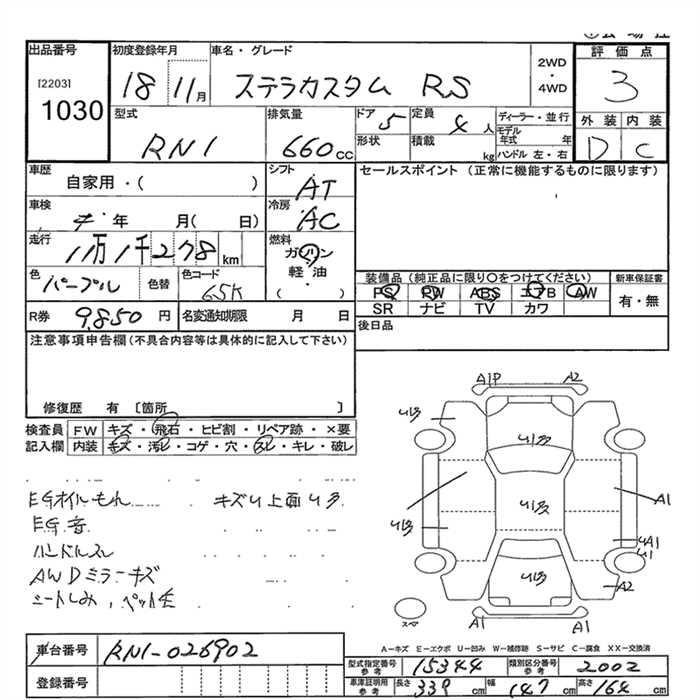 出品番号 初度登録年月 車名・グレード 2WD・4WD 評価点
[2203] 1030 18 11月 ステラカスタム RS 3
型式 排気量 ドア 定員 ディーラー・並行 外装 内装
RN1 660cc 5 4人 モデル年式 年 D C
形状 積載 kg ハンドル 左・右
車歴 シフト セールスポイント(正常に機能するものに限ります)
自家用・( ) AT
車検 冷房
年 月( 日) AC
走行 11万1千278km 燃料
ガソリン
軽・油
( )
色 パープル 色替 色コード
装備品(純正品に限り○をつけてください) 新車保証書
PS PW ABS エアB AW 有・無
SR ナビ TV カワ
R券 9,850円 名変通知期限 月 日 後日品
注意事項申告欄(不具合内容等は具体的に記入して下さい)
修復歴 有 〔箇所 〕
検査員 FW キズ・飛石・ヒビ割・リペア跡・×要
記入欄 内装 キズ・汚レ・コゲ・穴・スレ・キレ・破レ
A1P A2
U13 U13
EGオイルもれ キズU上面U多
EG音
ハンドルスレ
AWDミラーキズ
シートしみ、
A1
A1
U1
A2
A1 A1
スペア
A-キズ E-エクボ U-凹み W-補修跡 S-サビ C-腐食 XX-交換済
車台番号 RN1-026902
型式指定番号 参考 15344 類別区分番号 参考 2002
登録番号 車庫証明用 参考 長さ 339cm 幅 147cm 高さ 164cm